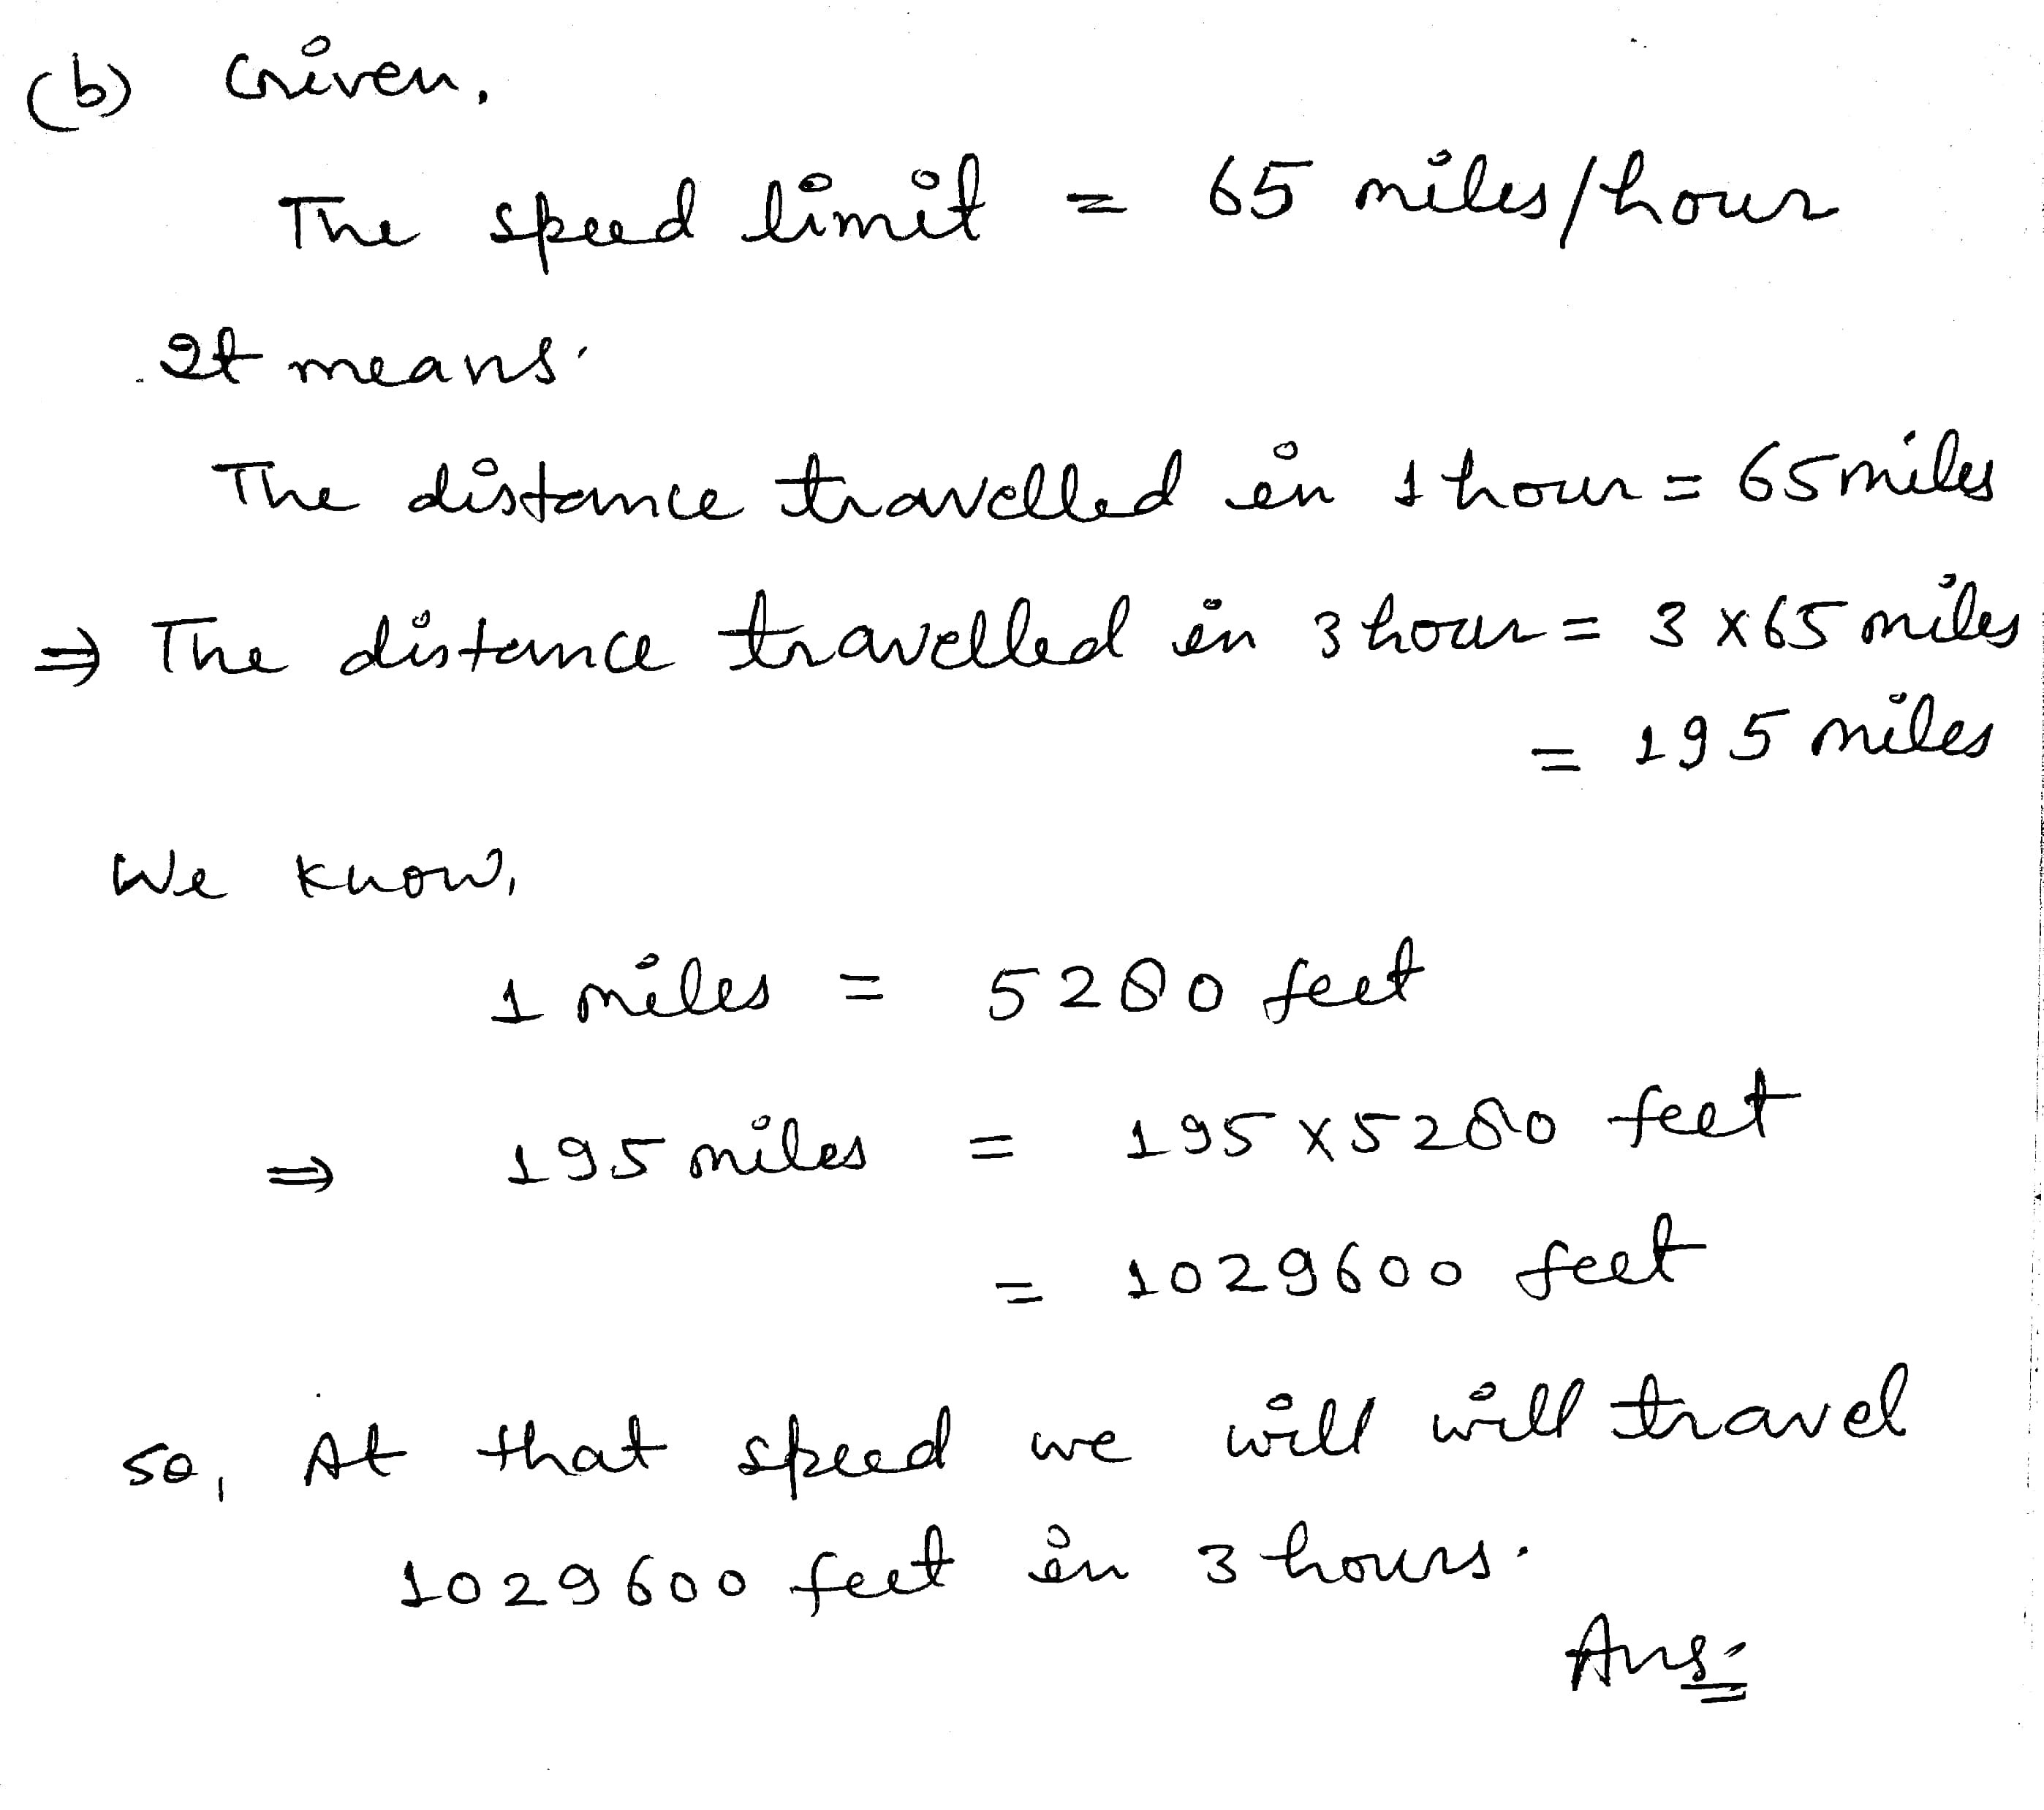 (b) Given,
The speed limit = 65 miles/hour
It means.
The distance travelled in 1 hour = 65 miles
⇒ The distance travelled in 3 hour = 3 x 65 miles
= 195 miles
We know,
1 miles = 5280 feet
⇒ 195 miles = 195 x 5280 feet
= 1029600 feet
so, At that speed we will will travel
1029600 feet in 3 hours.
Ans